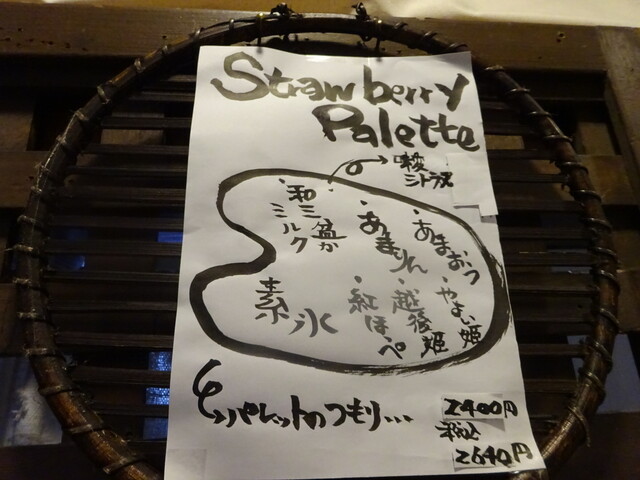 Strawberry
Palette
シトラス
・和三盆か
ミルク
・あまりん
・あまおつ
・紅ほっぺ
・越後姫
・やよい姫
素氷
パレットのつもり...
2400円
税込
2640円